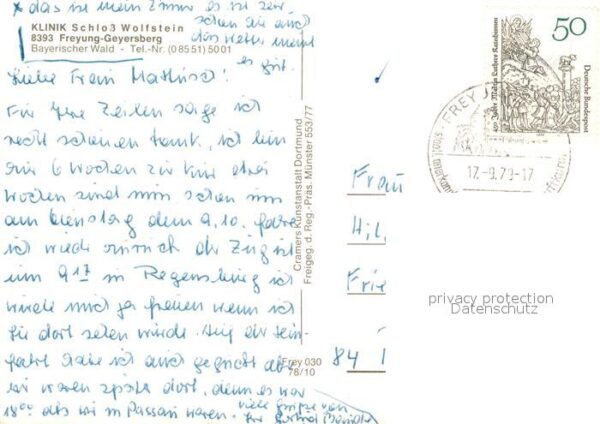 * das ist mein Zimmer es ist zen
KLINIK Schloß Wolfstein
8393 Freyung-Geyersberg
Bayerischer Wald - Tel.-Nr. (0 85 51) 50 01
es gut.
Liebe Frau
Für Ihre Zeilen sage ich
recht schönen Dank, ich bin
6 Wochen zur Kur drei
Wochen sind nun schon um
am Dienstag dem 9.10. fahre
ich wieder zurück der Zug ist
um 9 17 in Regensburg ich
würde mich ja freuen wenn ich
Sie dort sehen würde. Auf der Hein-
fahrt habe ich auch geguckt aber
wir waren später dort, denn es war
18 00 als wir in Passau waren. viele Grüße von
Ihr
Cramers Kunstanstalt Dortmund
Freigeg. d. Reg.-Präs. Münster 553/77
Frey 030
78/10
50
Deutsche Bundespost
450 Jahre Martin Luthers Katechismus
FREY
17.-9.79-17
Frau
Hil
Frie
84 1
privacy protection
Datenschutz